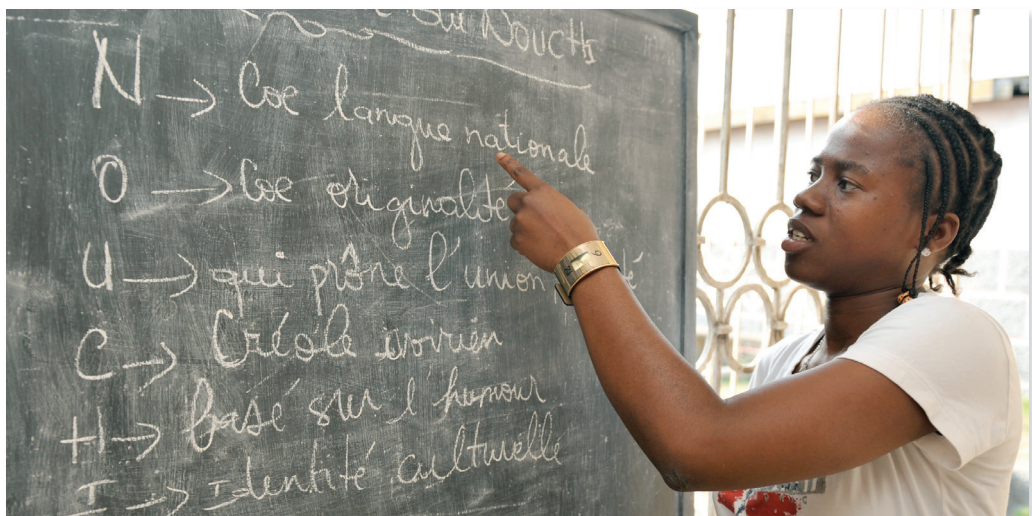 du Nouchi
N → Coe langue nationale
O → Coe originalité
U → qui prône l'union
C → Créole ivoirien
H → basé sur l'humour
I → Identité culturelle